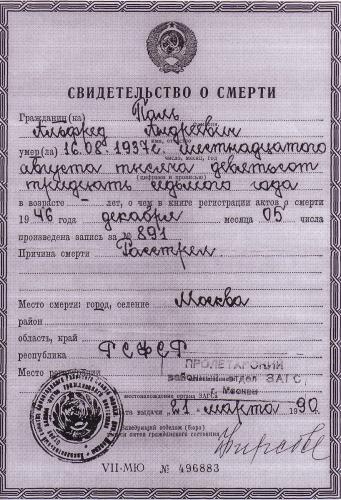 СВИДЕТЕЛЬСТВО О СМЕРТИ
Гражданин(ка) Поль
фамилия,
Альфред Андреевич
имя, отчество
умер(ла) 16.08.1937г. шестнадцатого
число, месяц, год
августа тысяча девятьсот
(цифрами и прописью)
тридцать седьмого года
в возрасте – лет, о чем в книге регистрации актов о смерти
19 46 года декабря месяца 05 числа
произведена запись за № 891
Причина смерти Расстрел
Место смерти: город, селение Москва
район
область, край
республика РСФСР
Место регистрации
ПРОЛЕТАРСКИЙ
отдел ЗАГС,
Москвы
местонахождение органа ЗАГСа
Дата выдачи „21“ марта 1990 г.
Заведующий отделом (бюро)
записи актов гражданского состояния
VII-МЮ № 496883